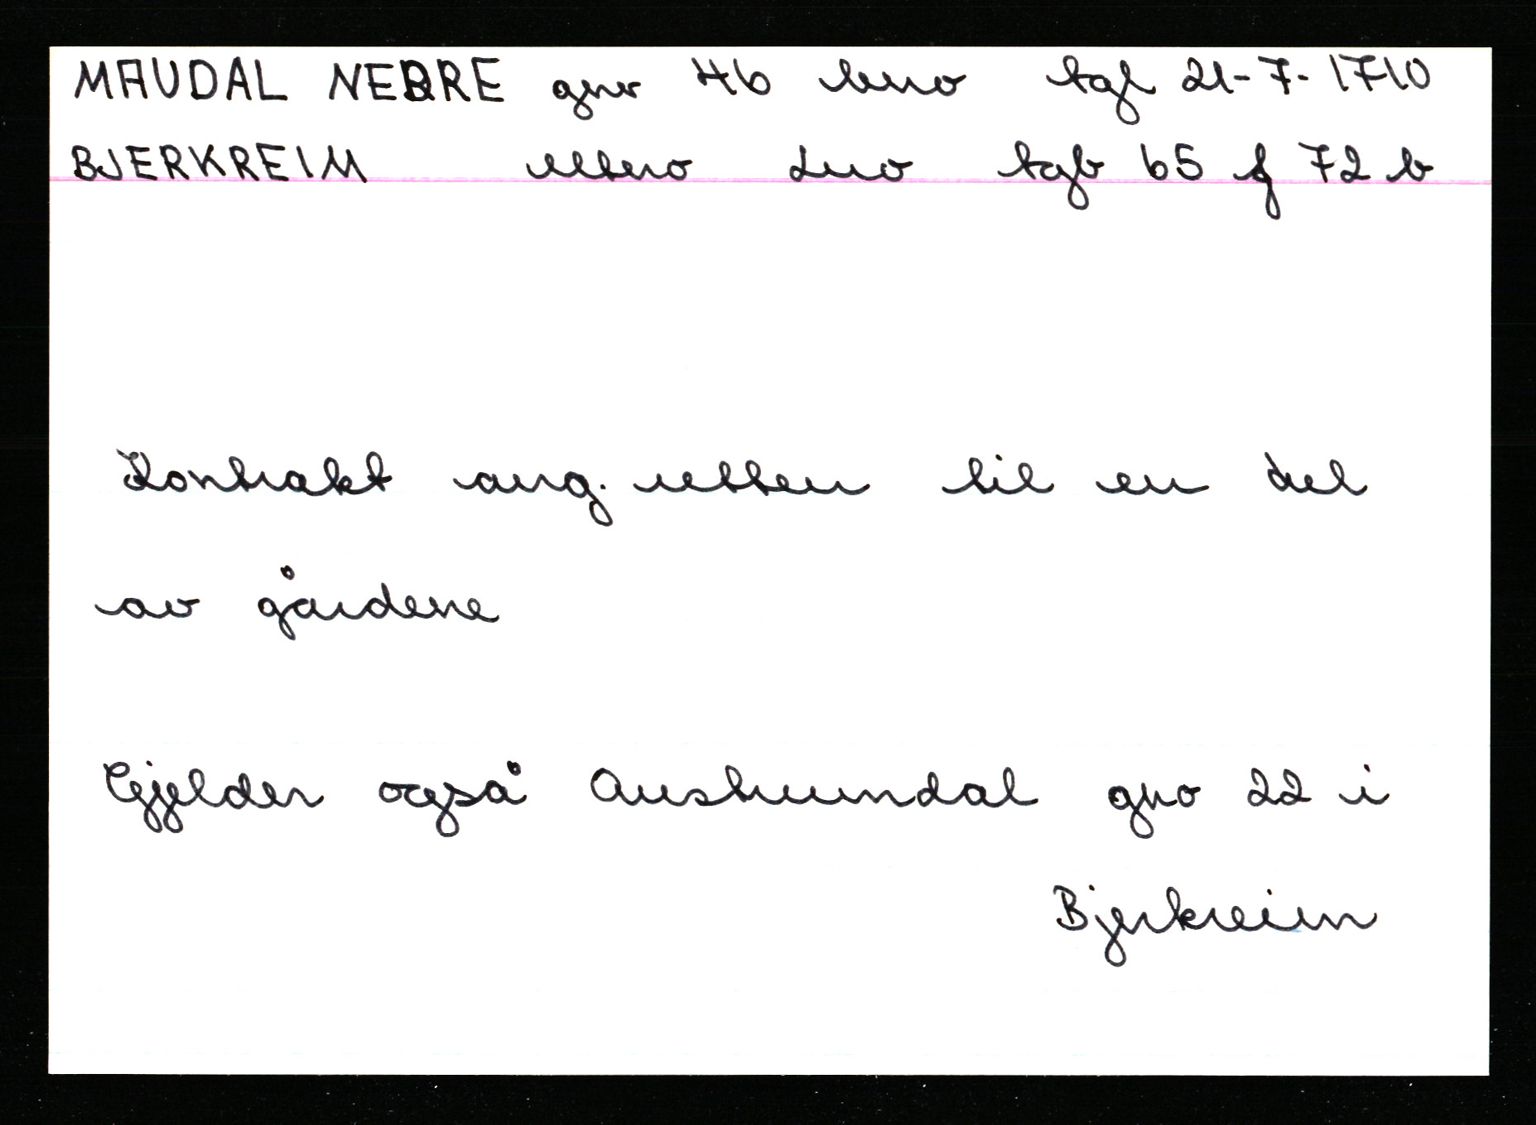 MAUDAL NEDRE gnr 46 bno tgl 21-7-1710
BJERKREIM utbno dno tgb 65 f 72 b
Kontrakt ang. retten til en del
av gårdene
Gjelder også Austrumdal gno 22 i
Bjerkreim